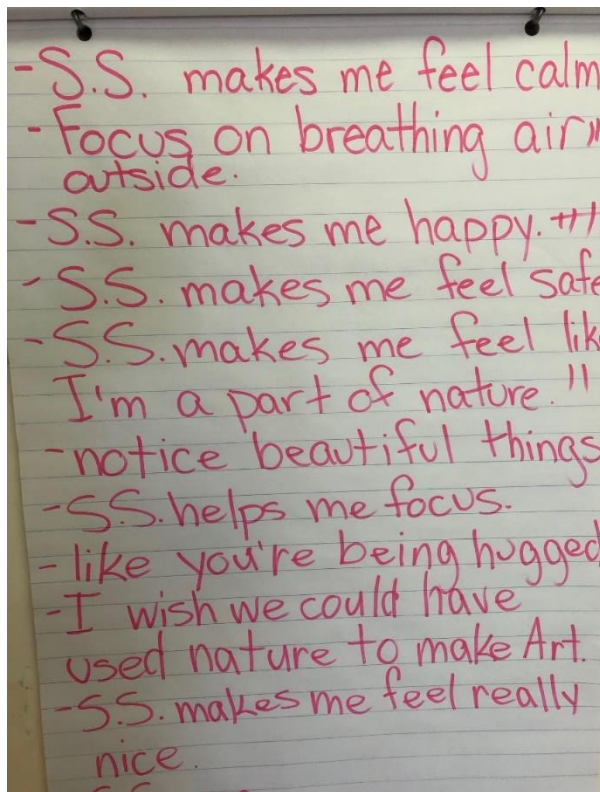 -S.S. makes me feel calm
-Focus on breathing air
outside.
-S.S. makes me happy.
-S.S. makes me feel safe
-S.S. makes me feel like
I'm a part of nature. "
-notice beautiful things
-S.S. helps me focus.
-like you're being hugged
-I wish we could have
used nature to make Art.
-S.S. makes me feel really
nice.